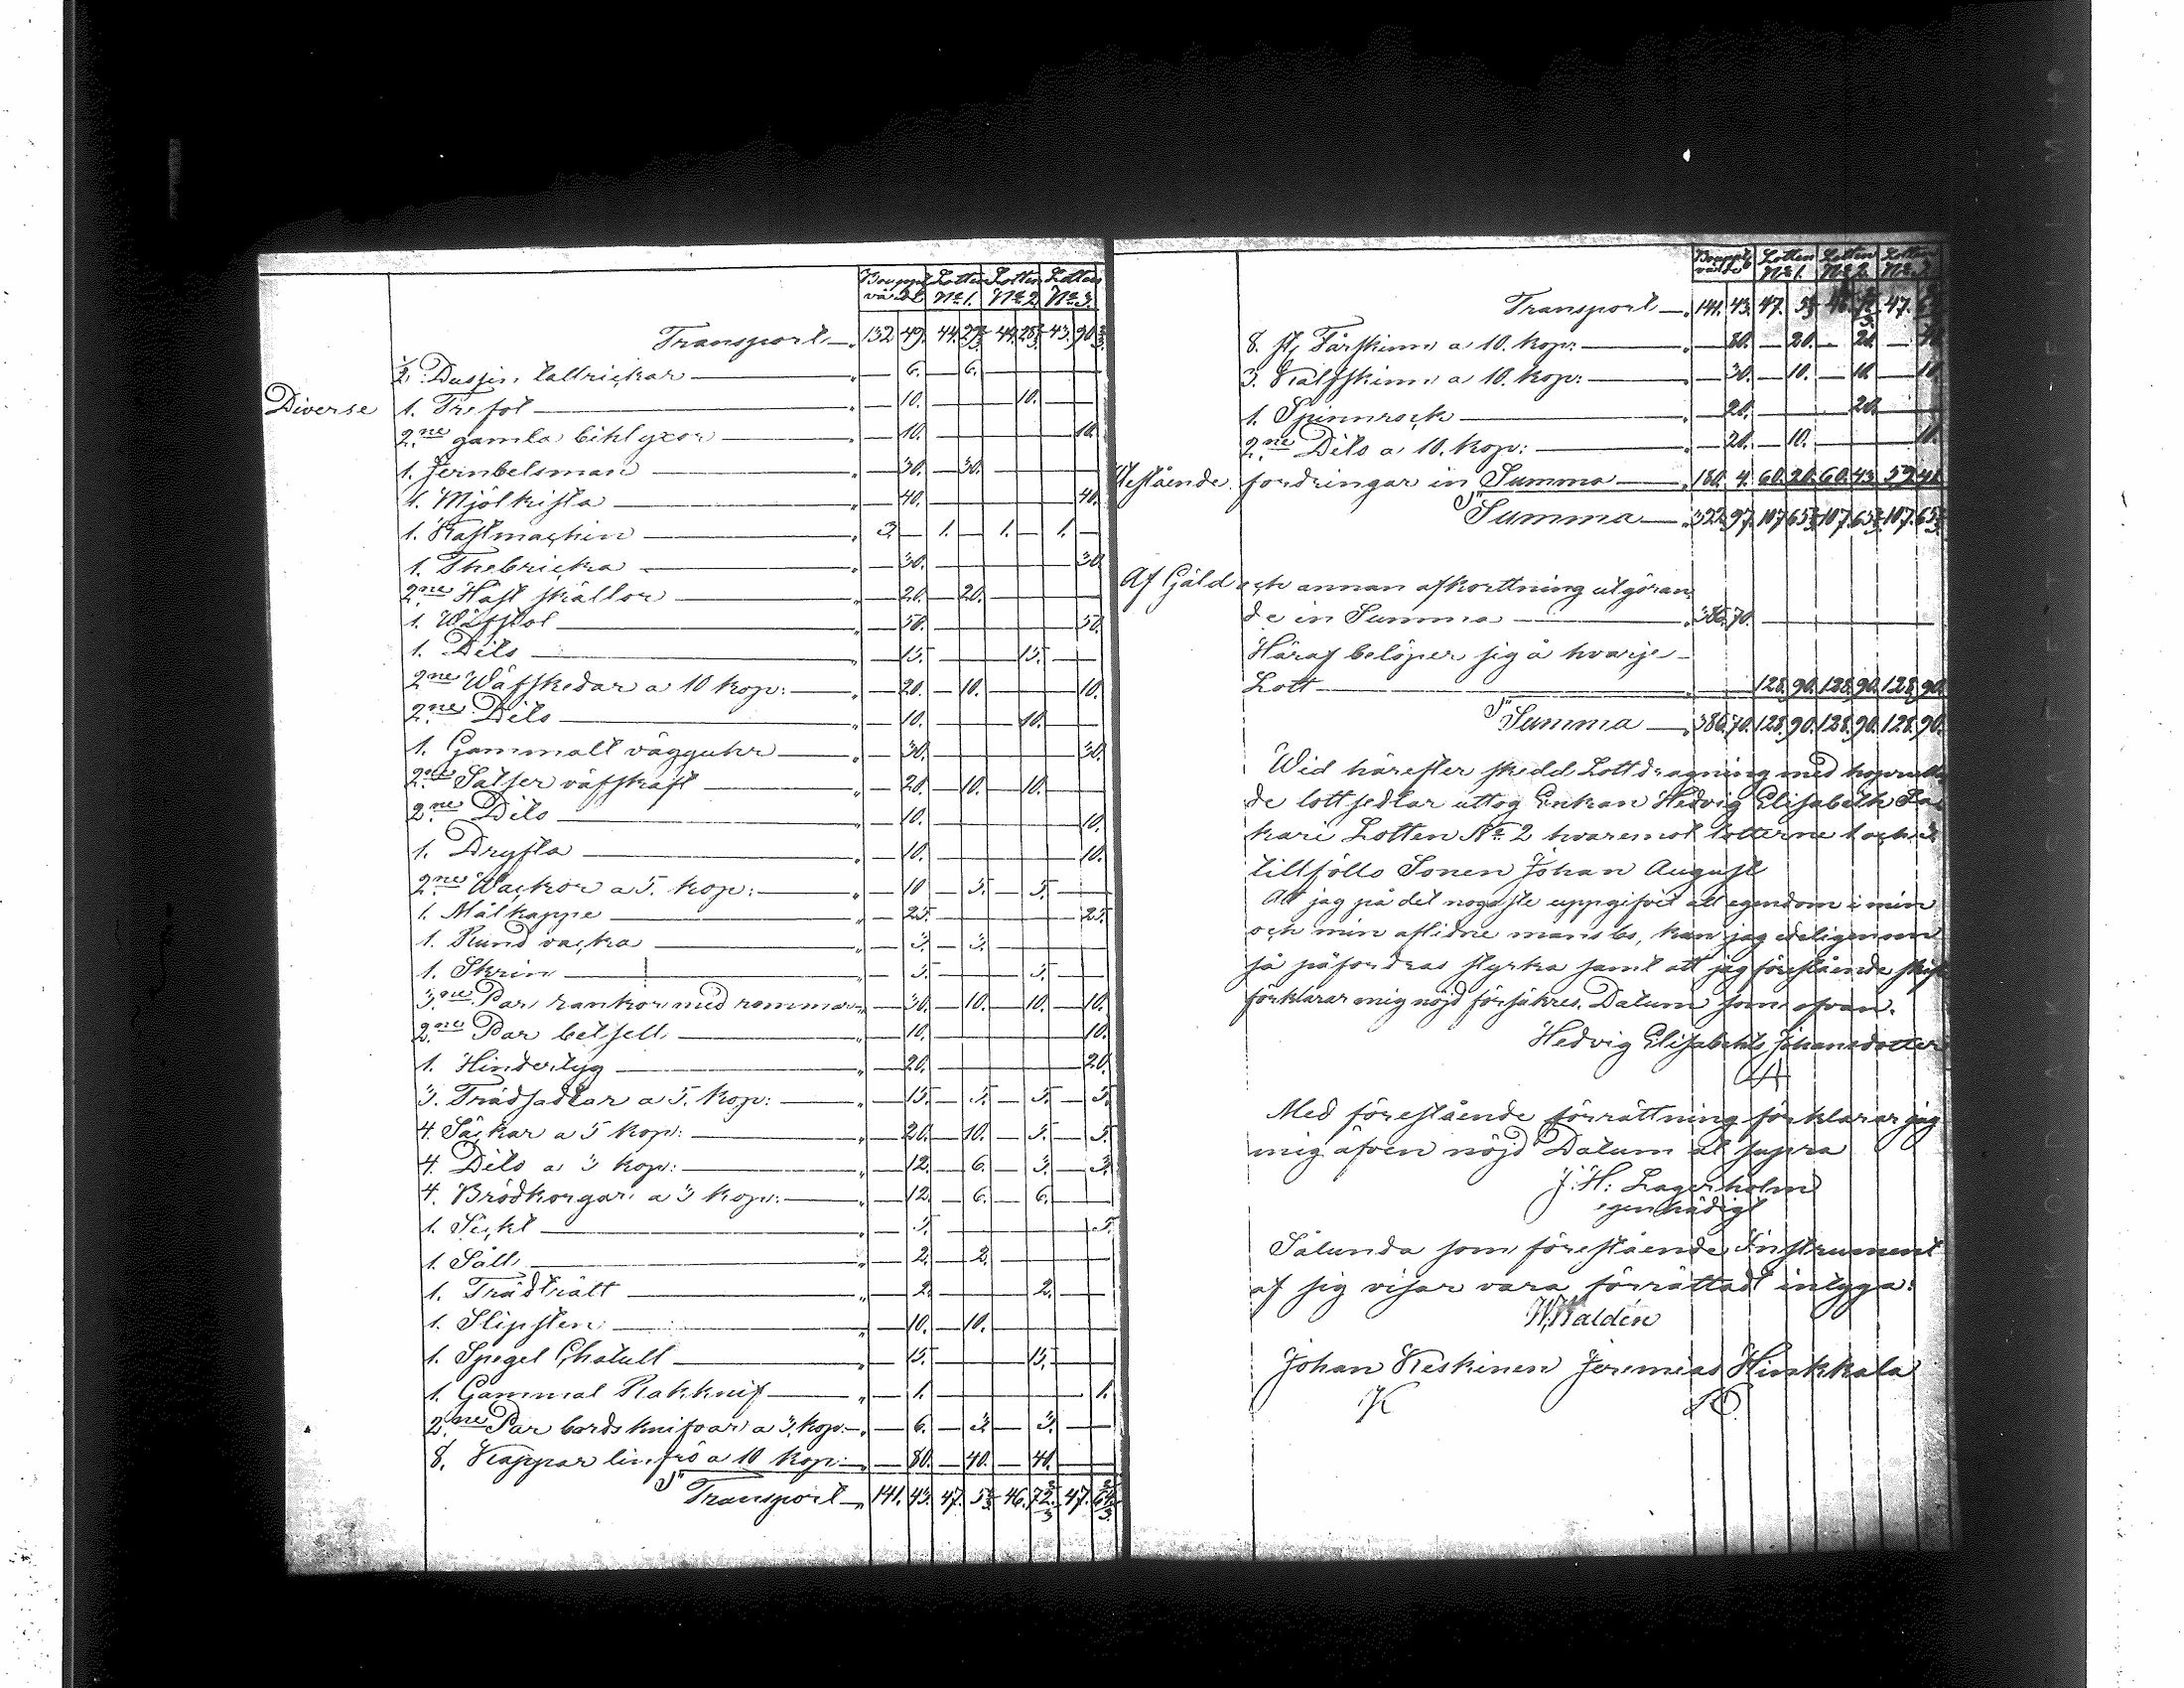 Bouppt. värde Lotten No 1. Lotten No 2 Lotten No 3.
Transport 132 49. 44. 29 2/3. 44. 28 2/3. 43. 90 2/3.
1/2 Dussin tallrickar 6. 6.
Diverse 1. Trefot 10. 10.
2ne gamla bihlyxor 10. 10.
1. Jernbelsman 30. 30.
1. Mjölkista 40. 40.
1. Kastmachin 3. 1. 1. 1.
1. Thebricka 30. 30.
2ne Häst skällor 20. 20.
1. Wäfstol 50. 50.
1. Dito 15. 15.
2ne Wäfskedar a 10 kop: 20. 10. 10.
2ne Dito 10. 10.
1. Gammalt vägguhr 30. 30.
2ne Satser väfskaft 20. 10. 10.
2ne Dito 10. 10.
1. Dryfta 10. 10.
2ne Wackor a 5. kop: 10 5. 5.
1. Målkappe 25. 25.
1. Rund vacka 3. 3.
1. Skrin 5. 5.
3ne Par rankor med remmar 30. 10. 10. 10.
2ne Par betsell 10. 10.
1. Hindertyg 20. 20.
3. Trädsadlar a 5. kop: 15. 5. 5. 5.
4. Säckar a 5 kop: 20. 10. 5. 5.
4. Dito a 3 kop: 12. 6. 3. 3.
4. Brödkorgar a 3 kop: 12. 6. 6.
1. Seckl 5. 5.
1. Såll 2. 2.
1. Trädtrått 2. 2.
1. Slipsten 10. 10.
1. Spegel Chatull 15. 15.
1. Gammal Rakknif 1. 1.
2ne Par bordsknifvar a 3. kop: 6. 3 3.
8. Kappar linfrö a 10 kop: 80. 40. 40.
Sr Transport 141. 43. 47. 5 2/3 46. 72 2/3. 47. 64 2/3.
Bouppt. värde Lotten No 1. Lotten No 2. Lotten No 3
Transport 141. 43. 47. 5 2/3 46. 47.
8. st, Fårskinn a 10. kop: 80. 20. 20.
3. Kalfskinn a 10. kop: 30. 10. 10. 10.
1. Spinnrock 20. 20.
2ne Dito a 10. kop: 20. 10. 10.
Utestående fordringar in Summa 180. 4. 60. 20. 60. 43 59. 41
Sr Summa 322. 97. 107 65 2/3 107. 65 2/3 107. 65 2/3
Af Gjäld och annan afkorttning utgöran
de in Summa 386. 70.
Häraf belöper sig å hvarje
Lott 128. 90. 128. 90. 128. 90.
Sr Summa 386. 70. 128. 90. 128. 90. 128. 90.
Wid härefter skedd Lottdragning med hoprulla
de lottsedlar uttog Enkan Hedvig Elisabeth
kari Lotten No 2 hvaremot lotterne 1 och 3
tillföllo Sonen Johan August
Att jag på det nogaste uppgifvit all egendom i min
och min aflidne mans bo, kan jag edeligen om
så påfordras styrka samt att jag förestående skift
förklarar mig nöjd försäkres. Datum som ofvan.
Hedvig Elisabeth Johansdotter
Med förestående förrättning förklarar jag
mig äfven nöjd Datum ut supra
J: H: Lagerholm
egenhädigt
Sålunda som förestående Instrument
af sig visar vara förrättadt intyga:
W. Waldén
Johan Keskinen Jeremias Hinkkala
K